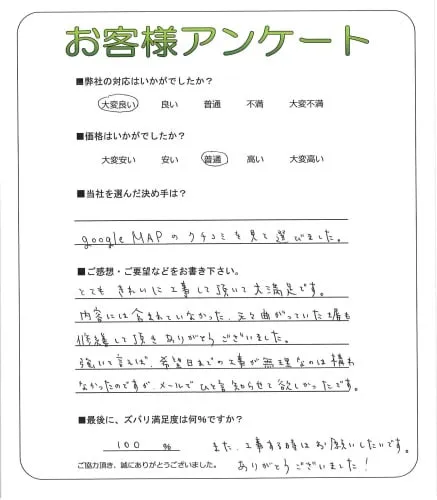 お客様アンケート
■弊社の対応はいかがでしたか?
大変良い 良い 普通 不満 大変不満
■価格はいかがでしたか?
大変安い 安い 普通 高い 大変高い
■当社を選んだ決め手は?
google MAPのクチコミを見て選びました。
■ご感想・ご要望などをお書き下さい。
とてもきれいに工事して頂いて大満足です。
内容には含まれていなかった、元々曲がっていた場所も
修繕して頂きありがとうございました。
強いて言えば、希望日までの工事が無理なのは構わ
なかったのですが、メールでひと言知らせて欲しかったです。
■最後に、ズバリ満足度は何%ですか?
100 % また、工事する時はお願いしたいです。
ご協力頂き、誠にありがとうございました。 ありがとうございました!